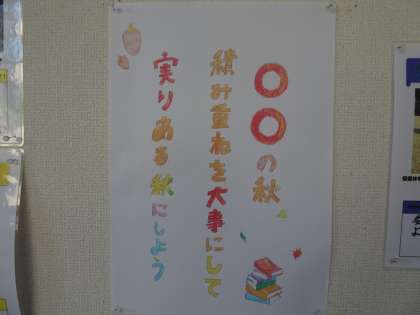 〇〇の秋
積み重ねを大事にして
実りある秋にしよう